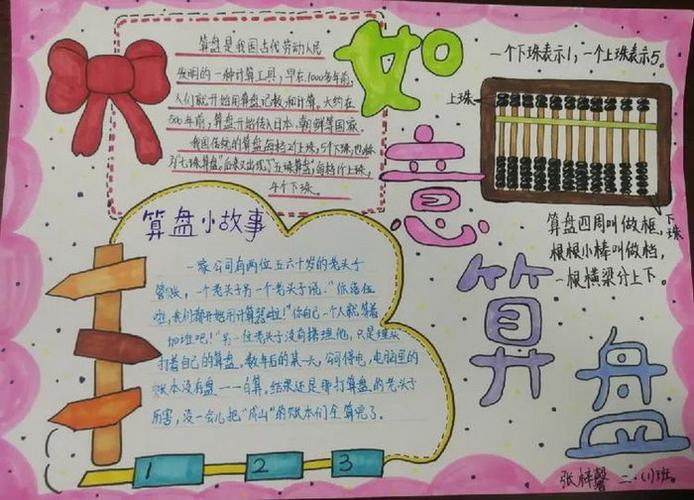 算盘是我国古代劳动人民
发明的一种计算工具,早在1000多年前,
人们就开始用算盘记数和计算。大约在
500年前,算盘开始传入日本、朝鲜等国家。
我国传统的算盘每档2个上珠,5个下珠,也称
为"七珠算盘"。后来又出现了"五珠算盘",每档1个上珠,
4个下珠。
如意算盘
一个下珠表示1,一个上珠表示5。
上珠
下珠
算盘四周叫做框,
根根小棒叫做档,
一根横梁分上下。
算盘小故事
一家公司有两位五六十岁的老头子
管账,一个老头子另一个老头子说:"你落伍
啦,我们都开始用计算器啦!"你自己一个人就等着
加班吧!"另一位老头子没有搭理他,只是埋头
打着自己的算盘。数年后的某一天,公司停电,电脑里的
账本没有盘——白算,结果还是那打算盘的老头子
厉害,没一会儿把"成山"的账本们全算完了。
1
2
3
张梓馨 二.(1)班。